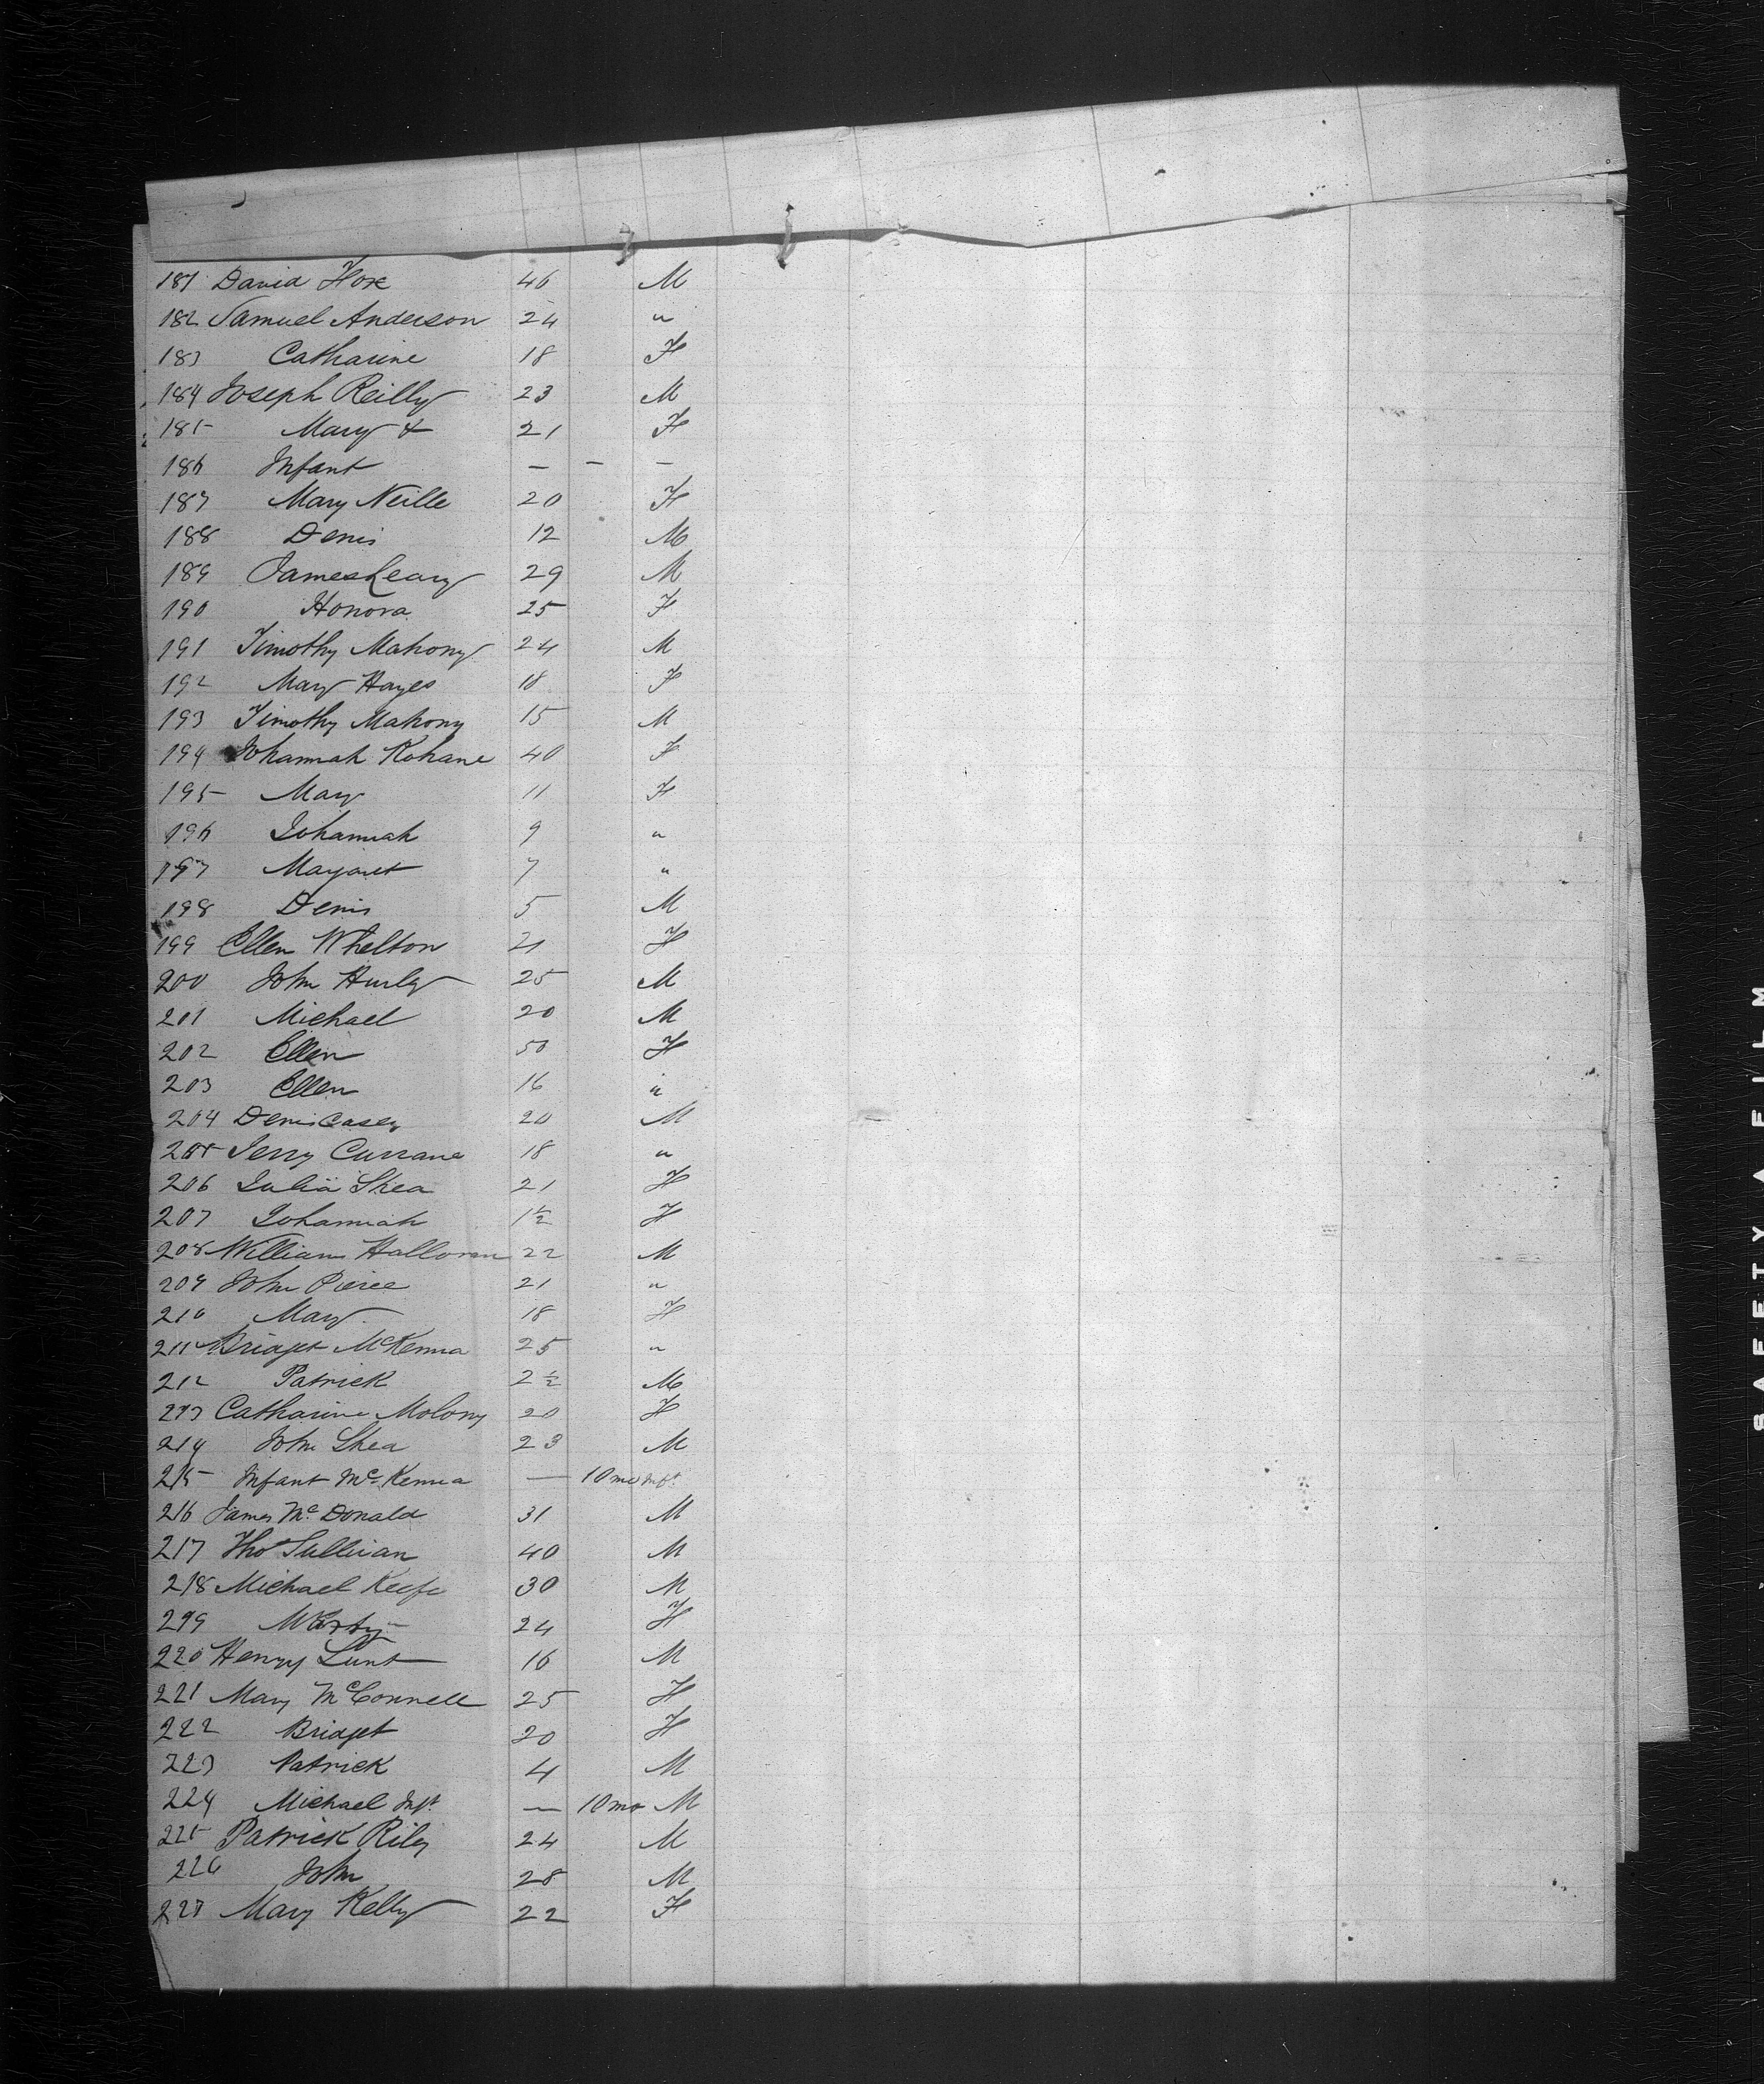 181 David Fox 46 M
182 Samuel Anderson 24 "
183 Catharine 18 F
184 Joseph Reilly 23 M
185 Mary & 21 F
186 Infant — — —
187 Mary Neille 20 F
188 Denis 12 M
189 James Leary 29 M
190 Honora 25 F
191 Timothy Mahony 24 M
192 Mary Hayes 18 F
193 Timothy Mahony 15 M
194 Johannah Kohane 40 F
195 Mary 11 F
196 Johannah 9 "
197 Margaret 7 "
198 Denis 5 M
199 Ellen Whelton 21 F
200 John Hurly 25 M
201 Michael 20 M
202 Ellen 50 F
203 Ellen 16 "
204 Denis Casey 20 M
205 Jerry Currane 18 "
206 Julia Shea 21 F
207 Johannah 1½ F
208 William Halloran 22 M
209 John Pierce 21 "
210 Mary 18 F
211 Bridget McKenna 25 "
212 Patrick 2½ M
213 Catharine Molony 20 F
214 John Shea 23 M
215 Infant McKenna — 10 mo Inft.
216 James McDonald 31 M
217 Thos Sullivan 40 M
218 Michael Keefe 30 M
219 24 F
220 Henry Lunt 16 M
221 Mary McConnell 25 F
222 Bridget 20 F
223 Patrick 4 M
224 Michael Inft. — 10 mo M
225 Patrick Rily 24 M
226 John 28 M
227 Mary Kelly 22 F
SAFETY A FILM